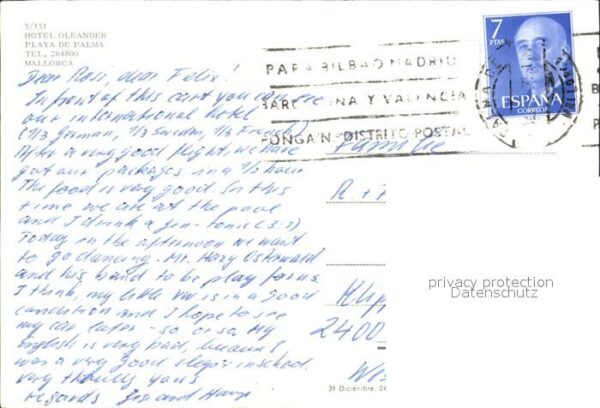 5/151
HOTEL OLEANDER
PLAYA DE PALMA
TEL., 264800
MALLORCA
Dear Rosi, dear Felix!
In front of this card you can see
our international hotel
(1/3 German, 1/3 Sweden, 1/3 French)
After a very good flight, we have
got our packages in a 1/2 hour
The food is very good. In this
time we are at the pool
and I drink a gin-tonic (3:1)
Today in the afternoon we want
to go dancing. Mr. Hary Ostwald
and his band to be play for us
I think, my little VW is in a good
condition and I hope to see
my car later - so or so. My
english is very bad, because I
was a very good sleeper in school.
very thrully yours
regards
and
7
PTAS
ESPAÑA
CORREOS
PARA BILBAO MADRID
BARCELONA Y VALENCIA
PONGA N.º DISTRITO POSTAL
Familie
R. +
Klipp
2400
privacy protection
Datenschutz
31 Diciembre, 24